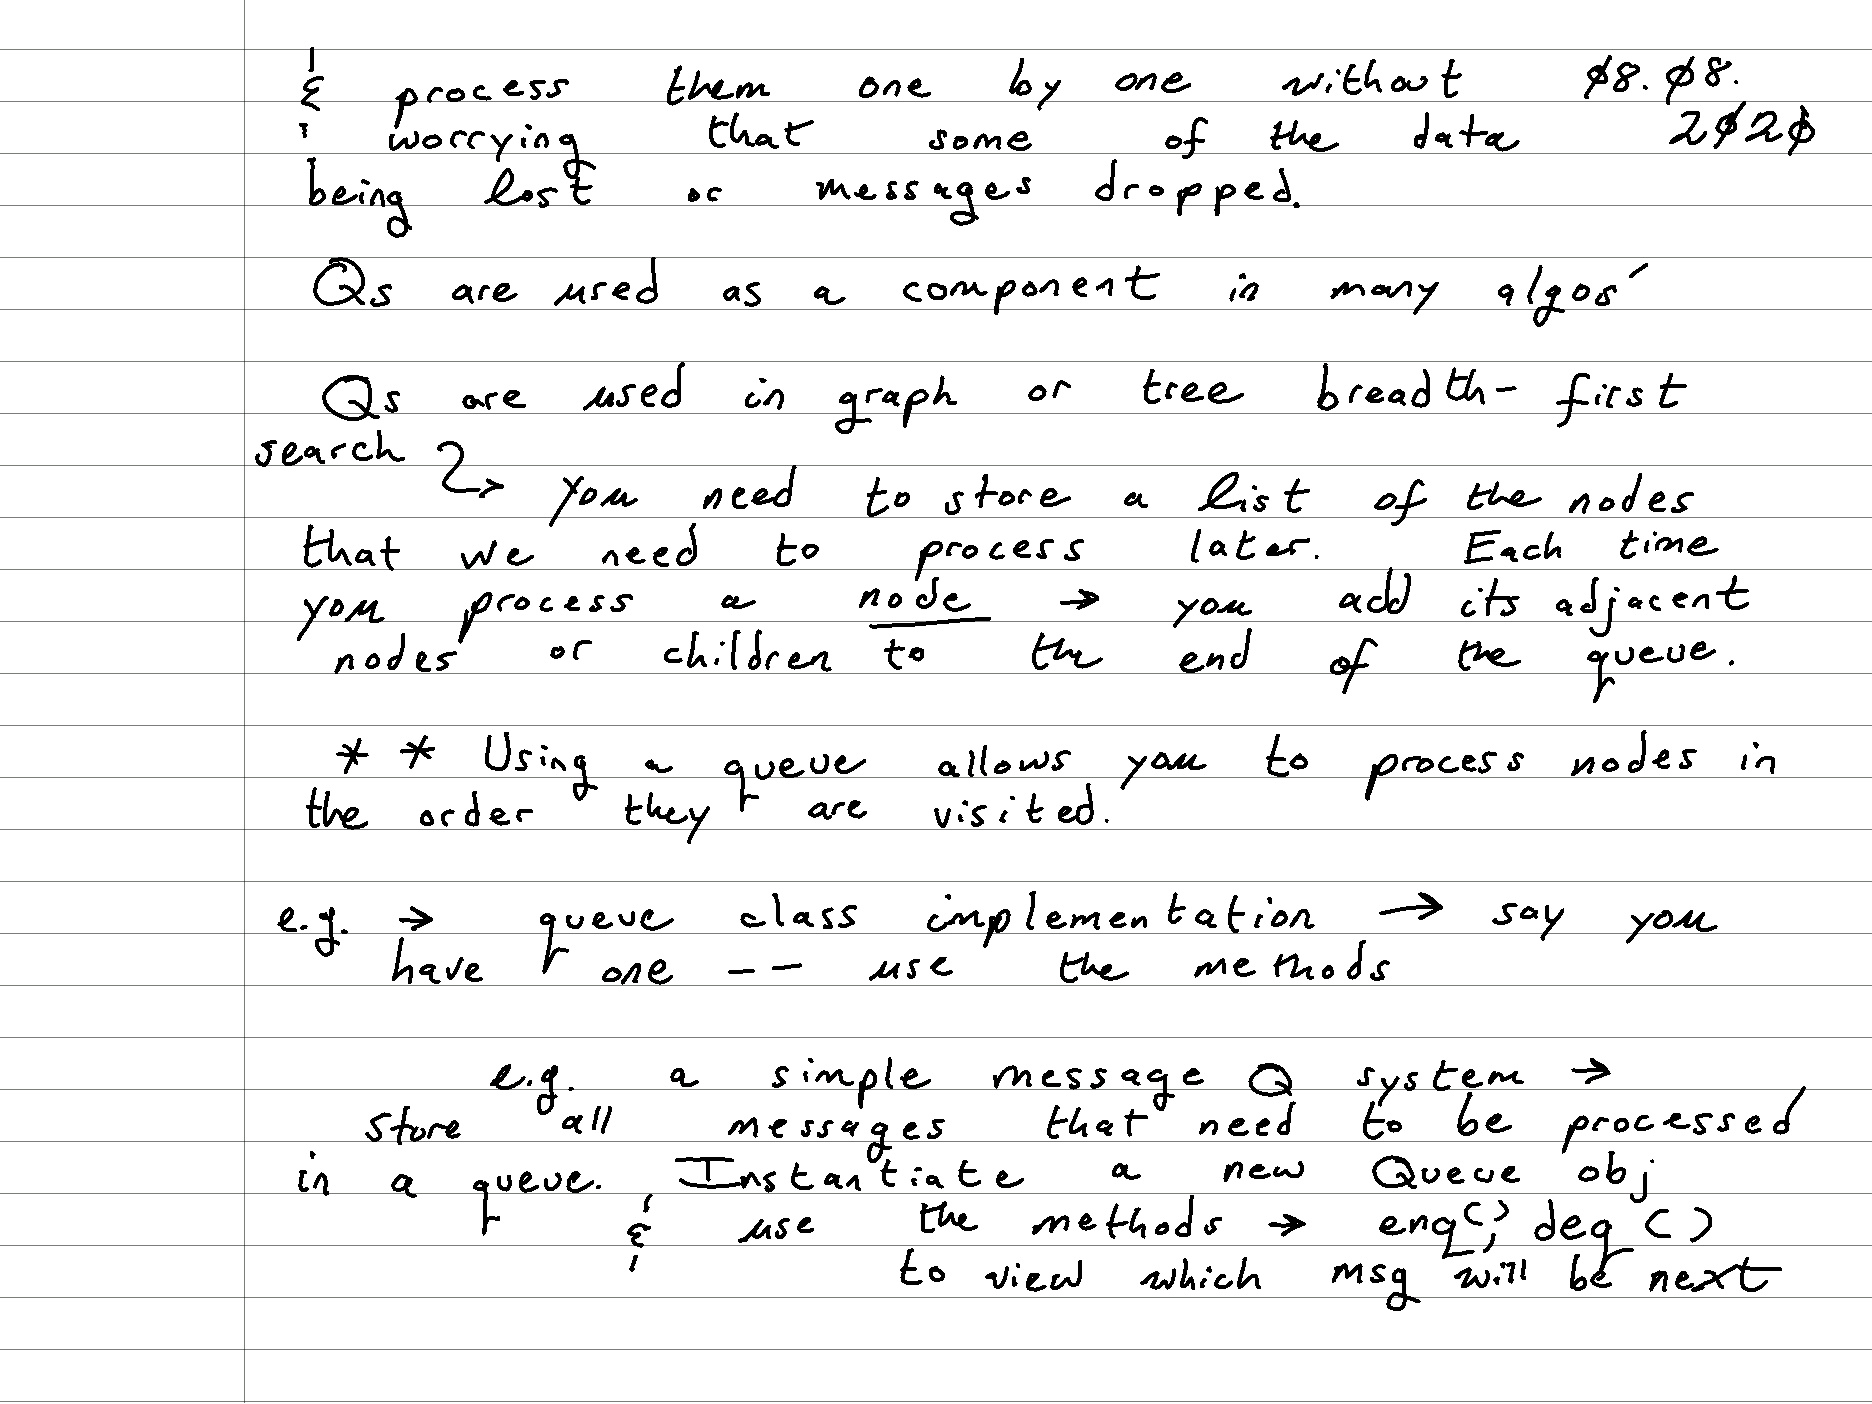 & process them one by one without 08.08.
worrying that some of the data 2020
being lost or messages dropped.
Qs are used as a component in many algos'
Qs are used in graph or tree breadth-first
search → you need to store a list of the nodes
that we need to process later. Each time
you process a node → you add its adjacent
nodes or children to the end of the queue.
* * Using a queue allows you to process nodes in
the order they are visited.
e.g. → queue class implementation → say you
have one -- use the methods
e.g. a simple message Q system →
store all messages that need to be processed
in a queue. Instantiate a new Queue obj
& use the methods → enq(), deq()
to view which msg will be next